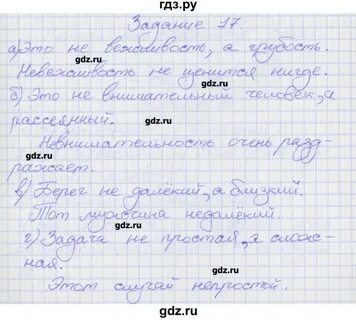 гдз.ру
Задание 17.
а) Это не вежливость, а грубость.
Невежливость не ценится нигде.
б) Это не внимательный человек, а
рассеянный.
Невнимательность очень разд-
ражает.
в) Берег не далёкий, а близкий.
Тот мужчина недалёкий.
г) Задача не простая, а слож-
ная.
Этот случай непростой.